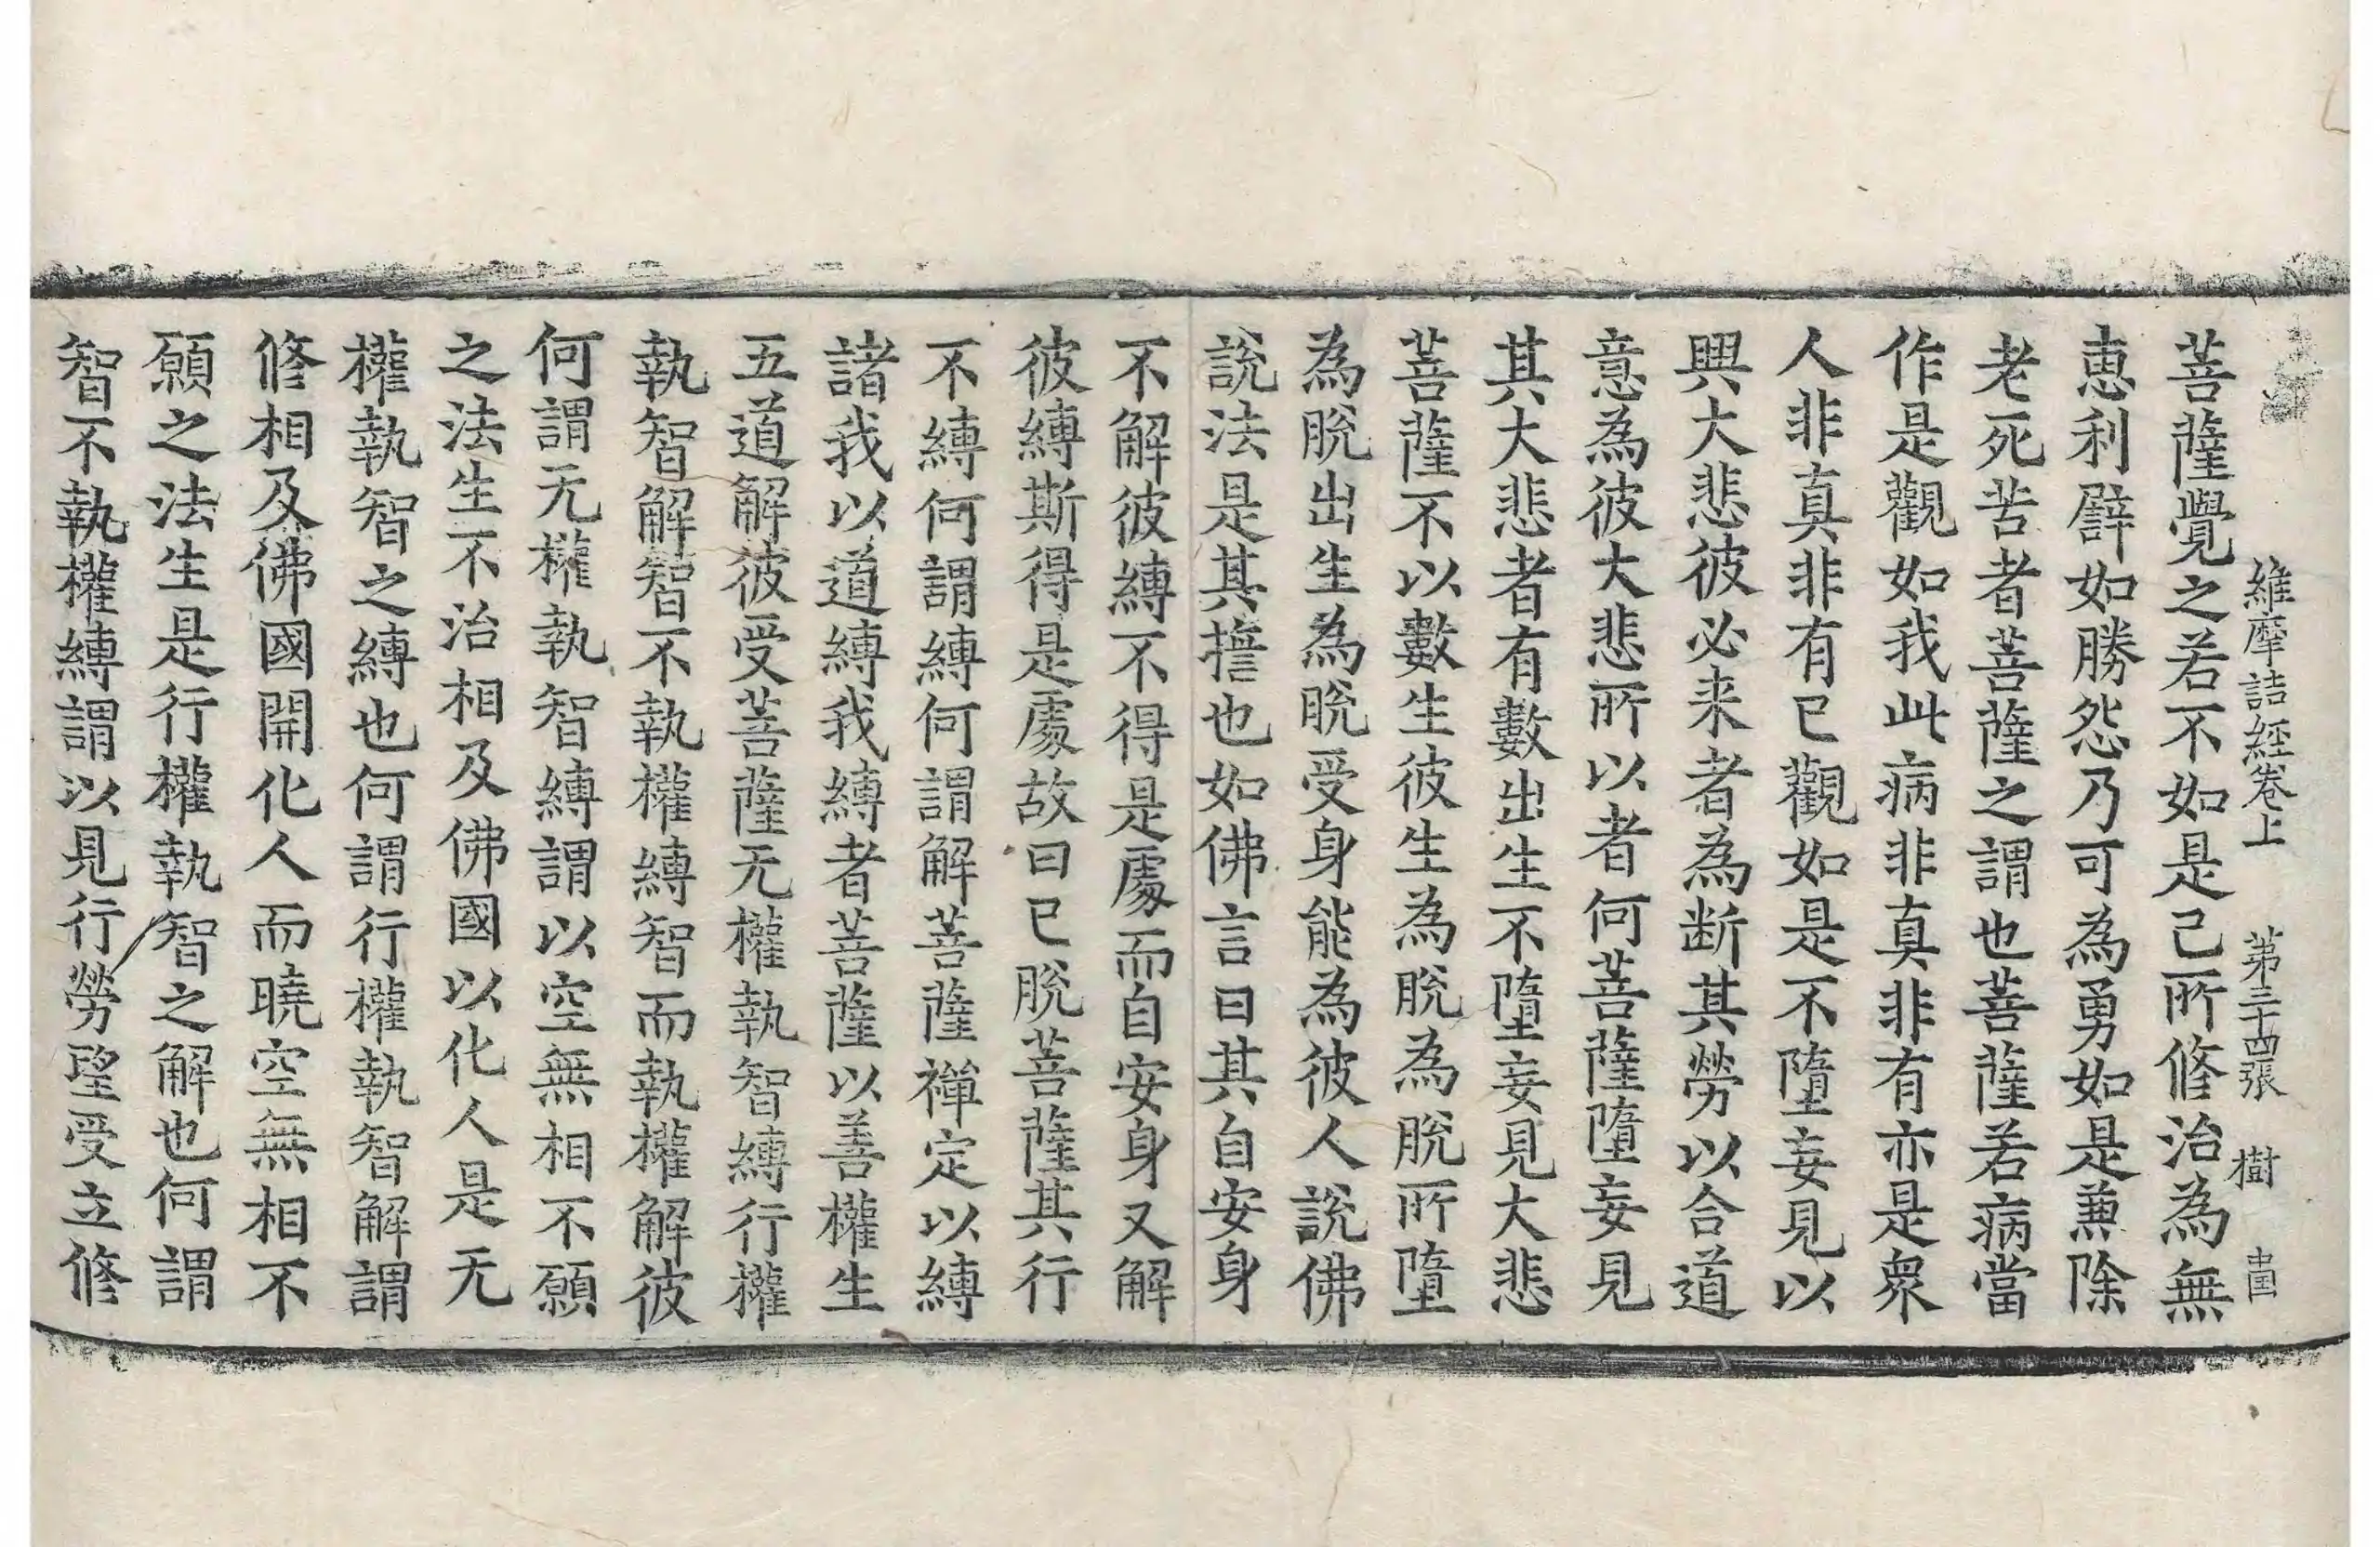 維摩詰經卷上 第三十四張 樹
菩薩覺之若不如是己所修治為無
恵利譬如勝怨乃可為勇如是兼除
老死苦者菩薩之謂也菩薩若病當
作是觀如我此病非真非有亦是衆
人非真非有已觀如是不墮妄見以
興大悲彼必来者為断其勞以合道
意為彼大悲所以者何菩薩墮妄見
其大悲者有數出生不墮妄見大悲
菩薩不以數生彼生為脫為脫所墮
為脫出生為脫受身能為彼人說佛
說法是其𢯱也如佛言曰其自安身
不解彼縛不得是處而自安身又解
彼縛斯得是處故曰已脫菩薩其行
不縛何謂縛何謂解菩薩禪定以縛
諸我以道縛我縛者菩薩以善權生
五道解彼受菩薩无權執智縛行權
執智解智不執權縛智而執權解彼
何謂无權執智縛謂以空無相不願
之法生不治相及佛國以化人是无
權執智之縛也何謂行權執智解謂
修相及佛國開化人而曉空無相不
願之法生是行權執智之解也何謂
智不執權縛謂以見行勞望受立修